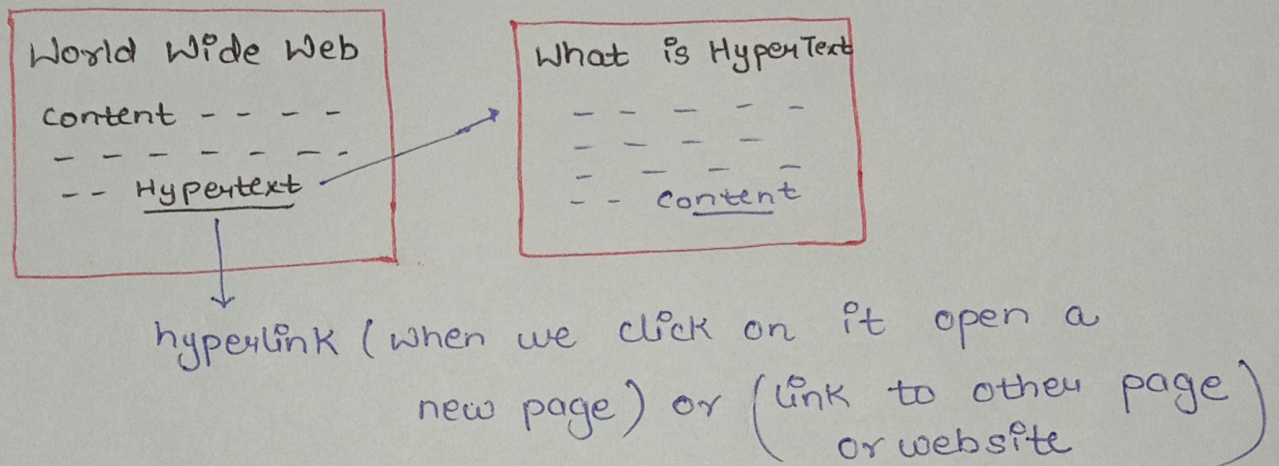 World Wide Web
content - - - -
- - - - - - -
- - Hypertext
What is HyperText
- - - - -
- - - -
- - - -
- - content
hyperlink (when we click on it open a
new page) or (link to other page
or website)